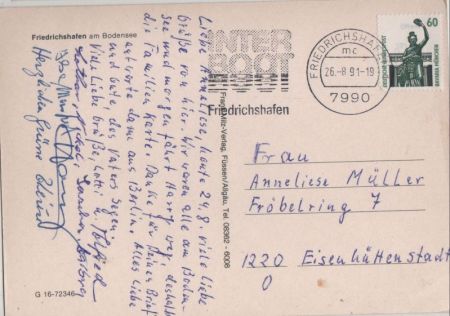 Friedrichshafen am Bodensee
Liebe Anneliese, heute 24.8. viele liebe
Grüße von hier. Wir waren alle am Boden-
see und morgen fährt Harry weg, deshalb
die Familien Karte. Danke für Deinen Brief
antworte dann aus Berlin. Alles Liebe
und Gute, des Vaters Segen.
Viele liebe Grüße, Lotti u.
Herzliche Grüße
INTER
BOOT
Friedrichshafen
FRIEDRICHSHAFEN
mc
26.-8.91-19
7990
60
DEUTSCHE BUNDESPOST
BAVARIA MÜNCHEN
Verlag, Füssen/Allgäu, Tel. 08362 - 6008
Frau
Anneliese Müller
Fröbelring 7
1220 Eisenhüttenstadt
O
G 16-72346